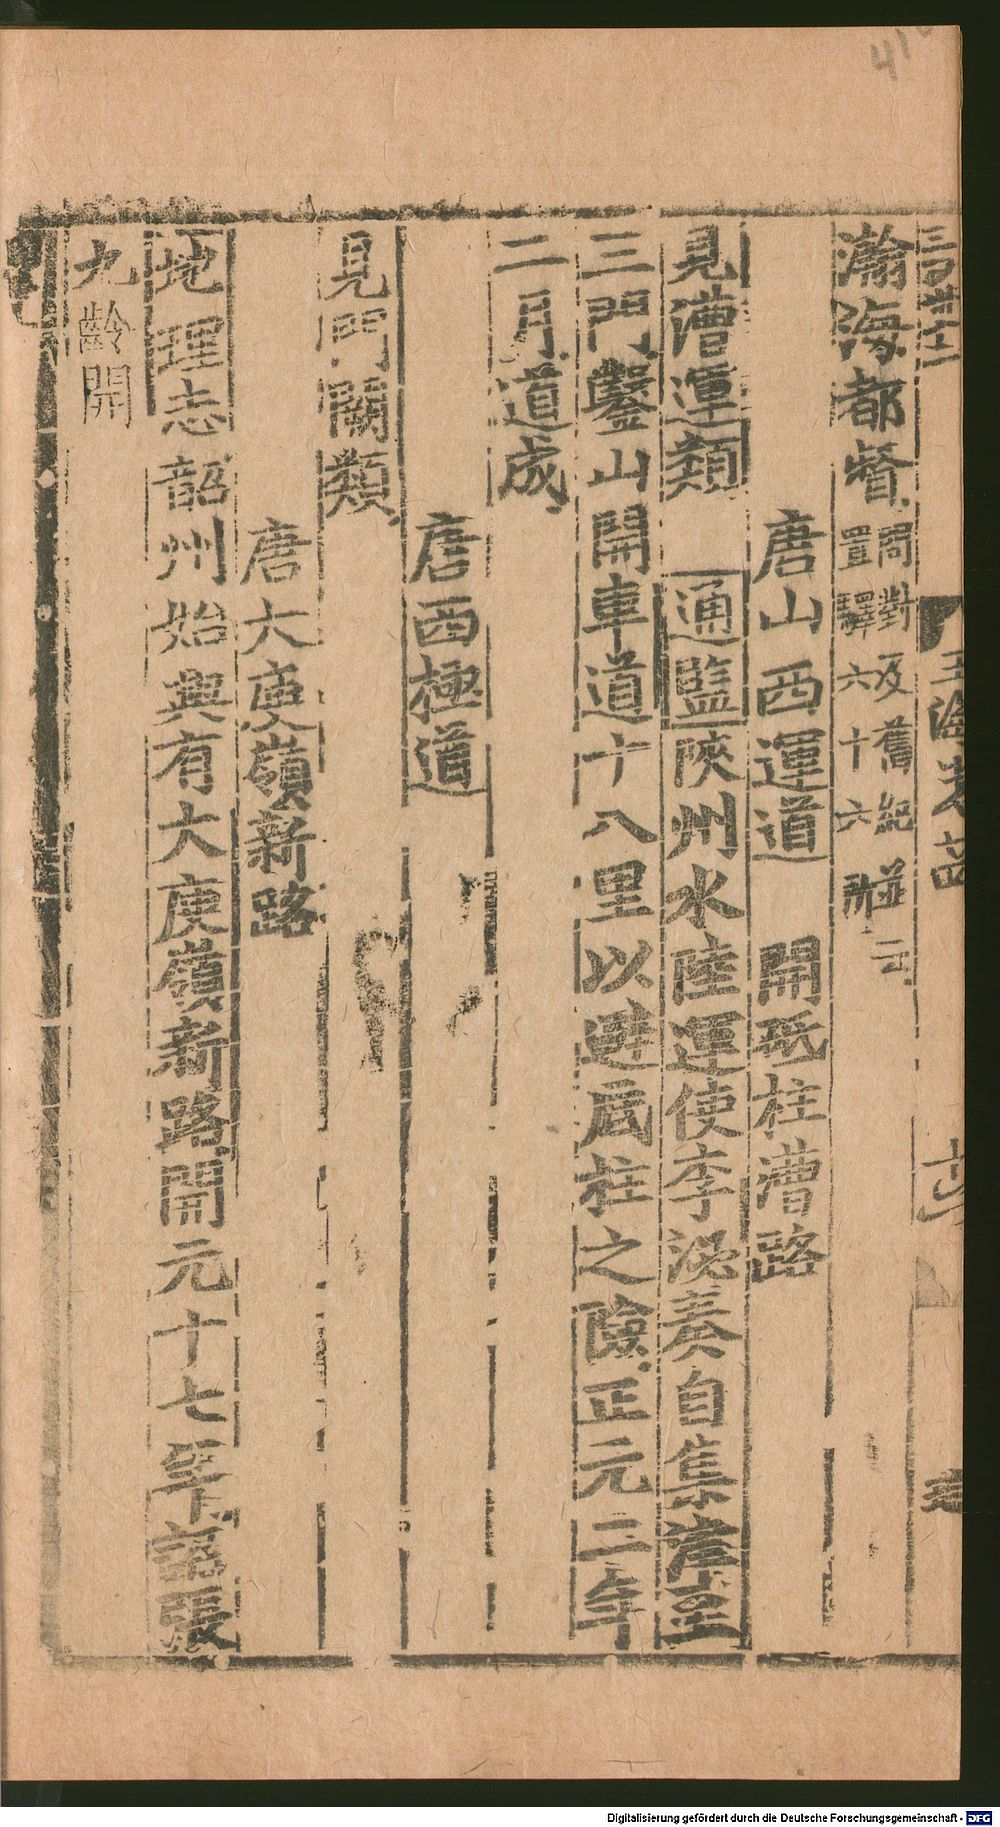 瀚海都督同對及舊紀並云
置驛六十六所
唐山西運道 開砥柱漕路
見漕運類 通監陝州水陸運使李泌奏自集津至
三門鑿山開車道十八里以避底柱之險正元二年
二月道成
唐西極道
見門關類
唐大庾嶺新路
地理志韶州始興有大庾嶺新路開元十七年詔張
九齡開
Digitalisierung gefördert durch die Deutsche Forschungsgemeinschaft - DFG